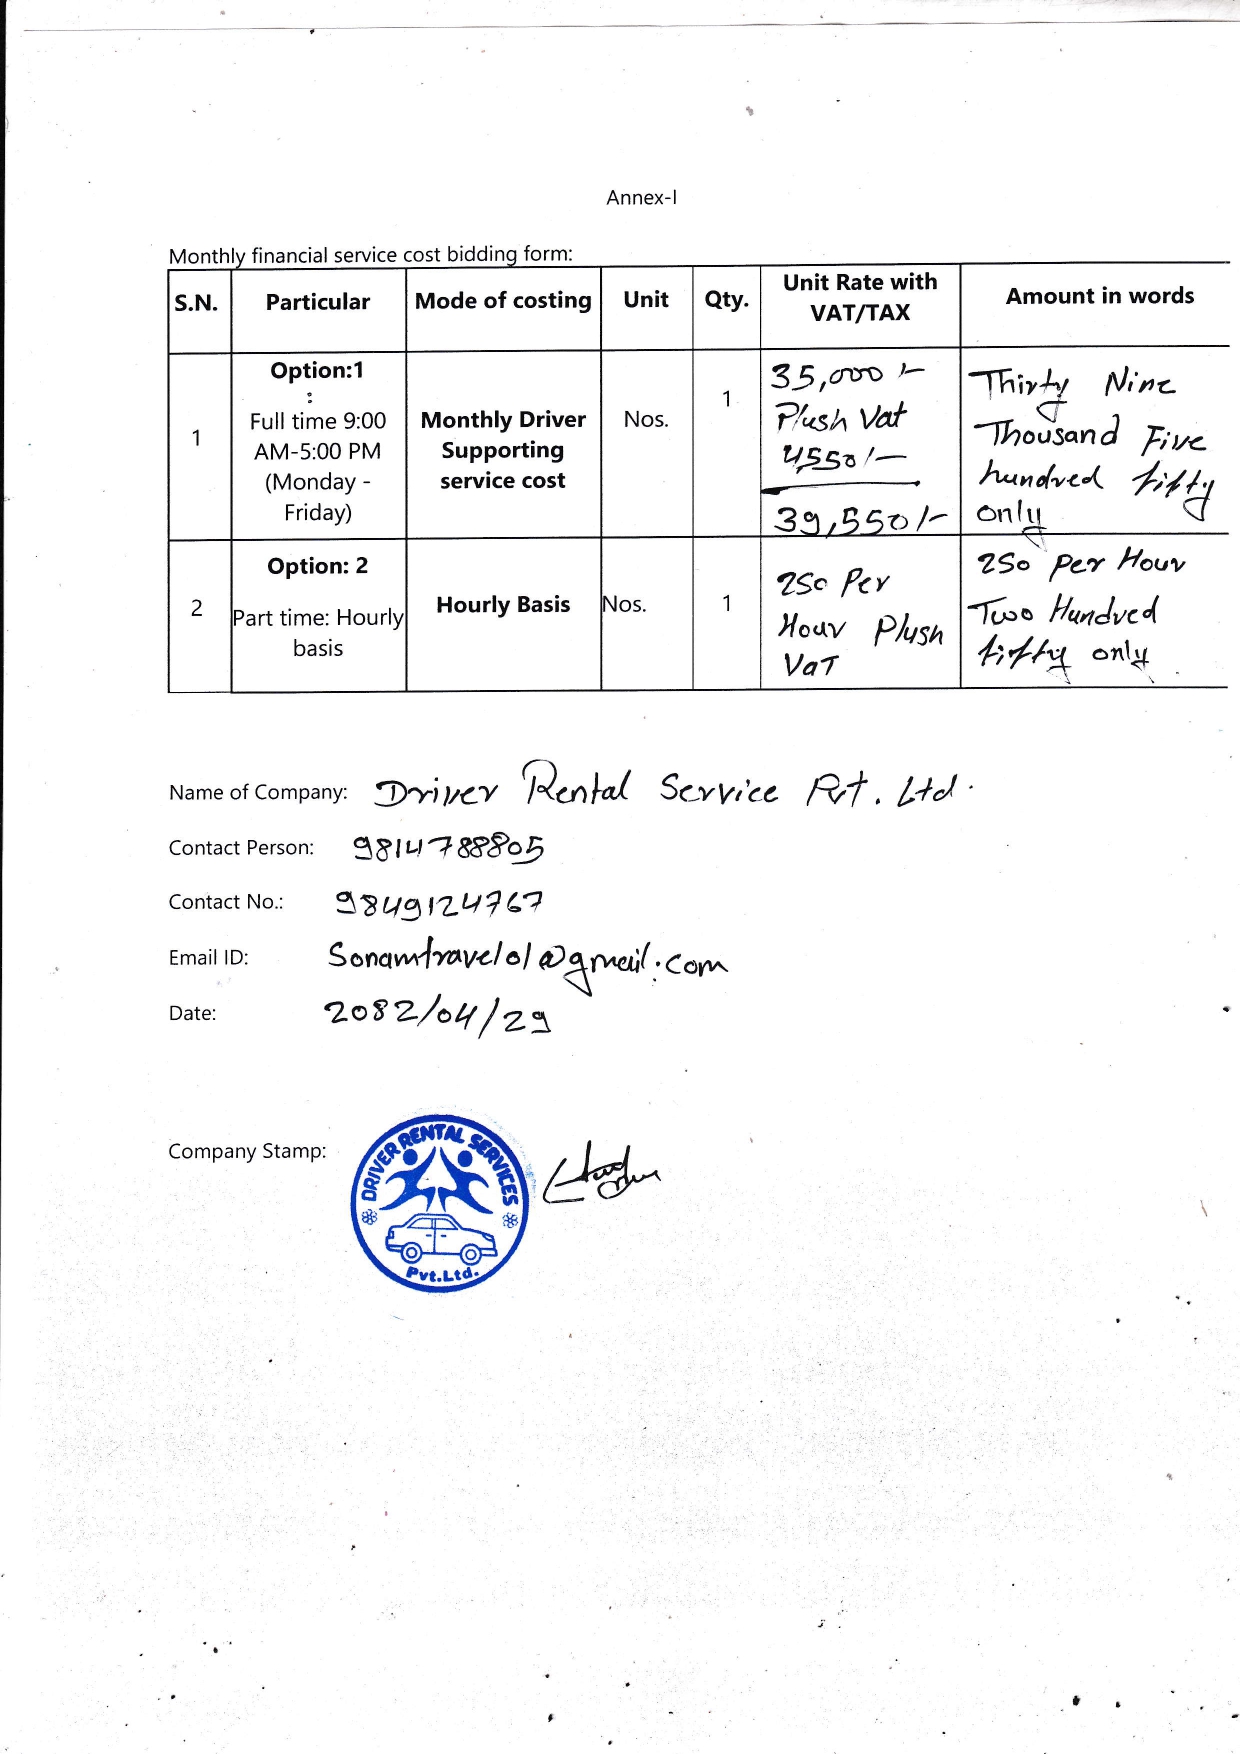 Annex-I
Monthly financial service cost bidding form:
S.N. Particular Mode of costing Unit Qty. Unit Rate with VAT/TAX Amount in words
1
Option:1
:
Full time 9:00
AM-5:00 PM
(Monday -
Friday)
Monthly Driver
Supporting
service cost
Nos.
1
35,000/-
Plush Vat
4,550/-
39,550/-
Thirty Nine
Thousand Five
hundred fifty
only
2
Option: 2
Part time: Hourly
basis
Hourly Basis
Nos.
1
250 Per
Hour Plush
VaT
250 Per Hour
Two Hundred
fifty only
Name of Company: Driver Rental Service Pvt. Ltd.
Contact Person: 9814788805
Contact No.: 9849124767
Email ID: Sonamtravel01@gmail.com
Date: 2082/04/29
Company Stamp:
DRIVER RENTAL SERVICES
Pvt.Ltd.